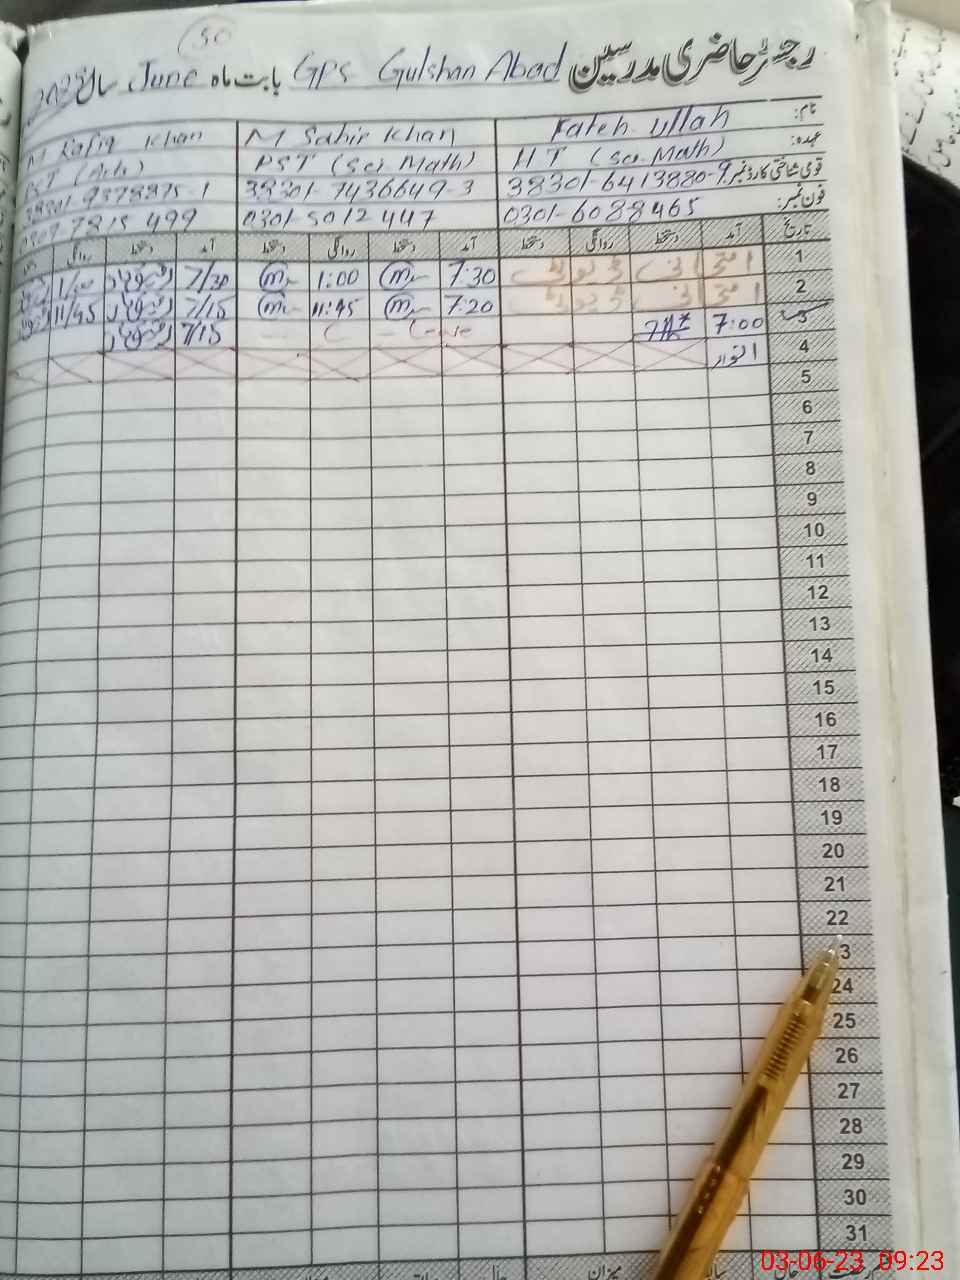 30
رجسٹر حاضری مدرسین GPS Gulshan Abad بابت ماہ June سال 2023
نام: Fateh Ullah M Sabir Khan M Rafiq Khan
عہدہ: HT (Sci. Math) PST (Sci Math) PST (Arts)
قومی شناختی کارڈ نمبر: 38301-6413880-9 38301-7436649-3 38301-9378875-1
فون نمبر: 0301-6088465 0301-5012447 0307 7815 499
تاریخ آمد دستخط روانگی دستخط آمد دستخط روانگی دستخط آمد دستخط روانگی
1 امتحانی ڈیوٹی 7:30 1:00 7/30 1/00
2 امتحانی ڈیوٹی 7:20 11:45 7/15 11/45
3 7:00 7/15
4 اتوار
5
6
7
8
9
10
11
12
13
14
15
16
17
18
19
20
21
22
3
24
25
26
27
28
29
30
31
میزان
03-06-23 09:23